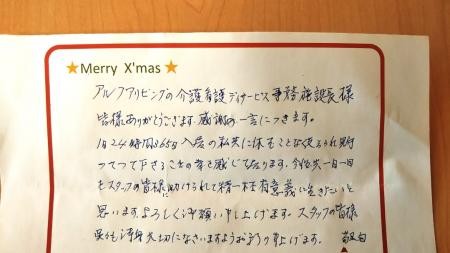 ★Merry X'mas★
アルファリビングの介護看護デイサービス事務 施設長様
皆様ありがとうございます。感謝の一言につきます。
1日24時間365日 入居の私共に休もことなく
下さることの幸を感じて居ります。今後共一日一日
をスタッフの皆様に助けられて精一杯有意義に生きたいと
思います。よろしく御願い申し上げます。スタッフの皆様
御身大切になさいますようお祈り申上げます。 敬白